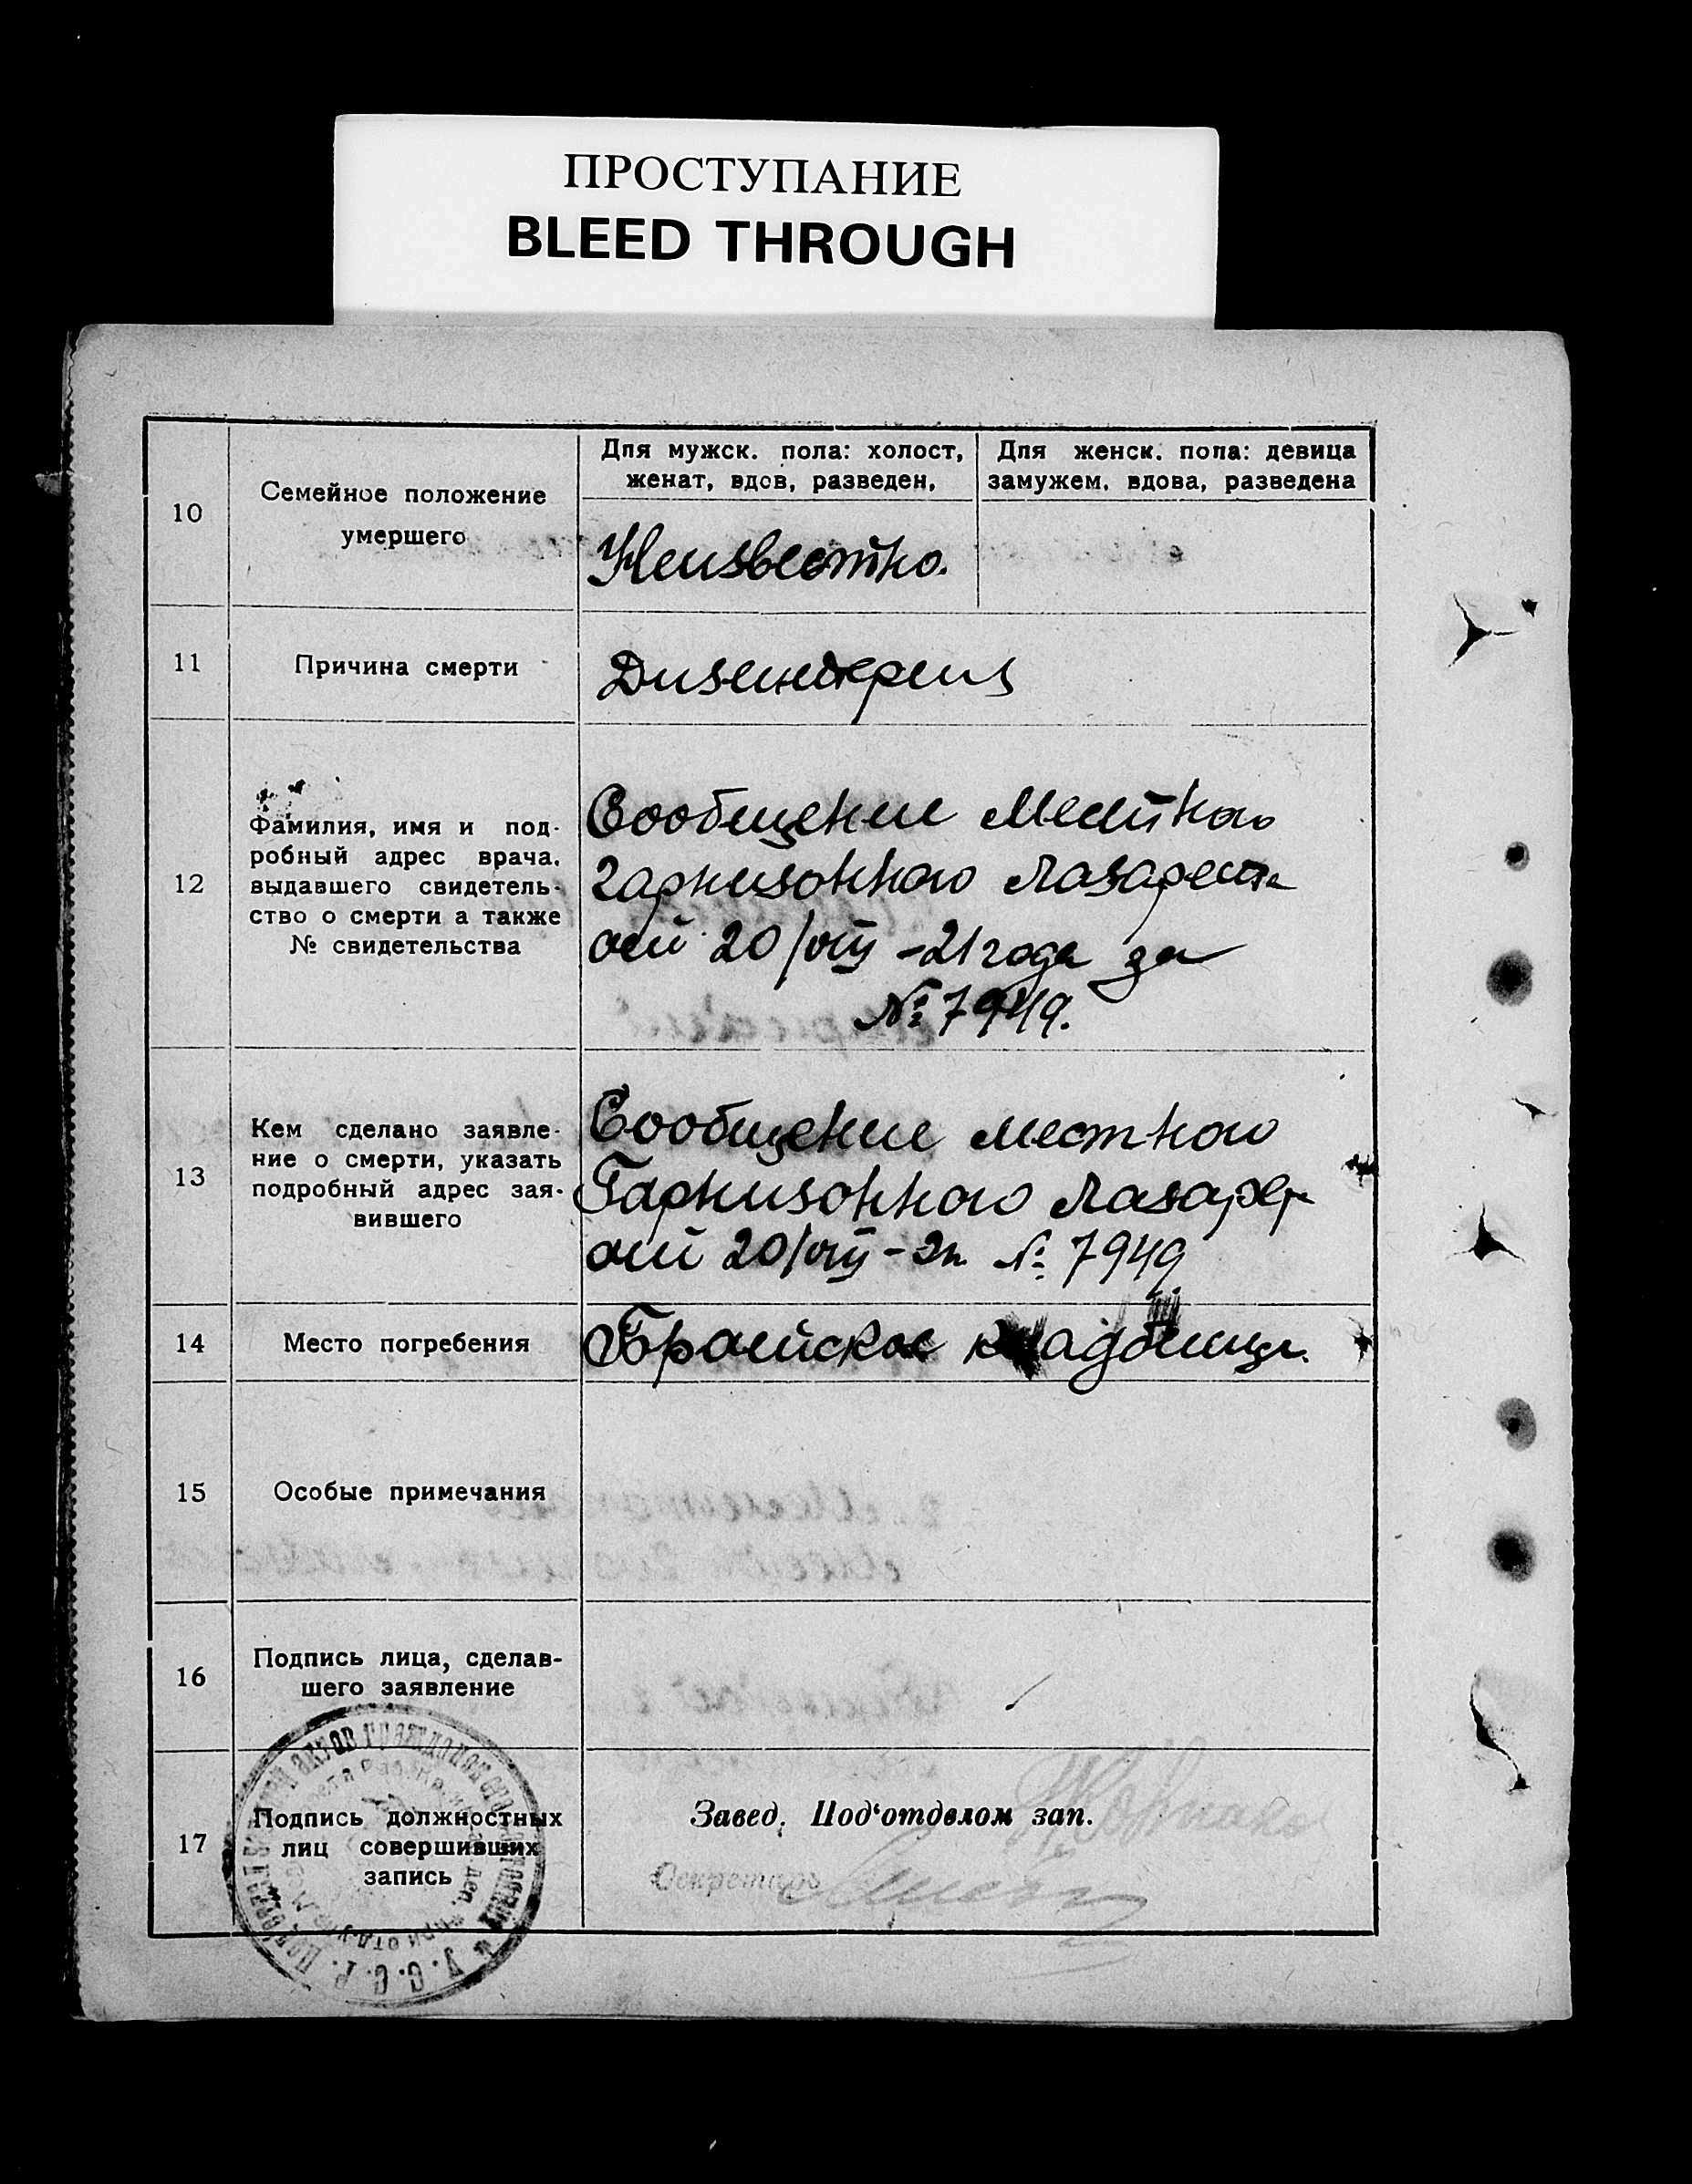 ПРОСТУПАНИЕ
BLEED THROUGH
10
Семейное положение
умершего
Для мужск. пола: холост,
женат, вдов, разведен,
Для женск. пола: девица
замужем, вдова, разведена
Неизвестно.
11
Причина смерти
Дизентерия
12
Фамилия, имя и под-
робный адрес врача,
выдавшего свидетель-
ство о смерти а также
№ свидетельства
Сообщение Местного
гарнизонного лазарета
от 20/VIII -21 года за
№ 7949.
13
Кем сделано заявле-
ние о смерти, указать
подробный адрес зая-
вившего
Сообщение местного
Гарнизонного Лазарет
от 20/VIII - 21г. № 7949
14
Место погребения
Братское кладбище.
15
Особые примечания
16
Подпись лица, сделав-
шего заявление
17
Подпись должностных
лиц совершивших
запись
Завед. Под‘отделом зап.
Секретарь
У.С.С.Р.